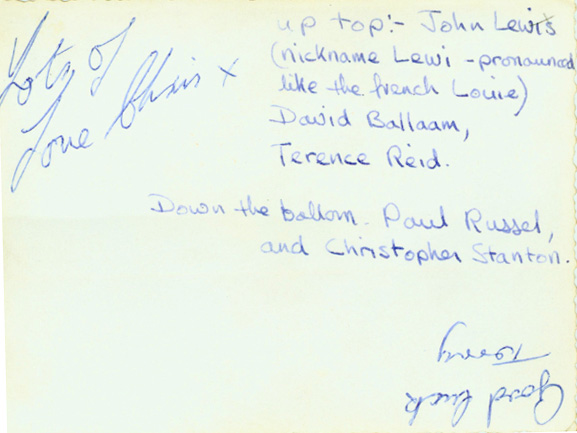 Lots of
Love Chris x
up top:- John Lewis
(nickname Lewi - pronounced
like the french Louie)
David Ballaam,
Terence Reid.
Down the bottom. Paul Russel,
and Christopher Stanton.
Good luck
Terry